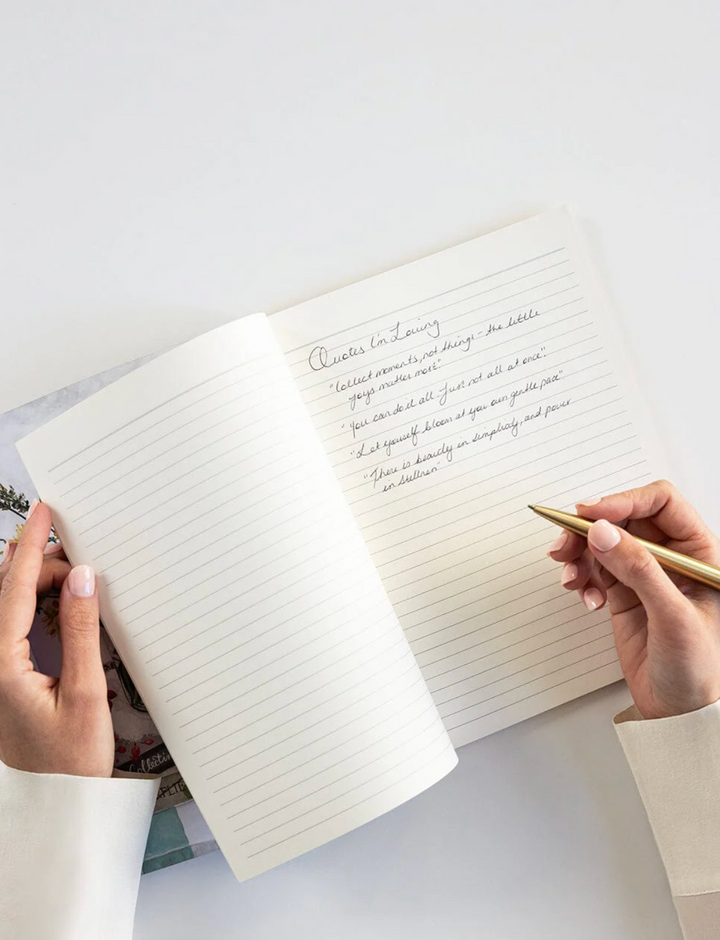 Quotes I'm Loving
"Collect moments, not things - the little
joys matter most"
"You can do it all. Just not all at once".
"Let yourself bloom at you own gentle pace"
"There is beauty in simplicity, and power
in stillness"
Collectin